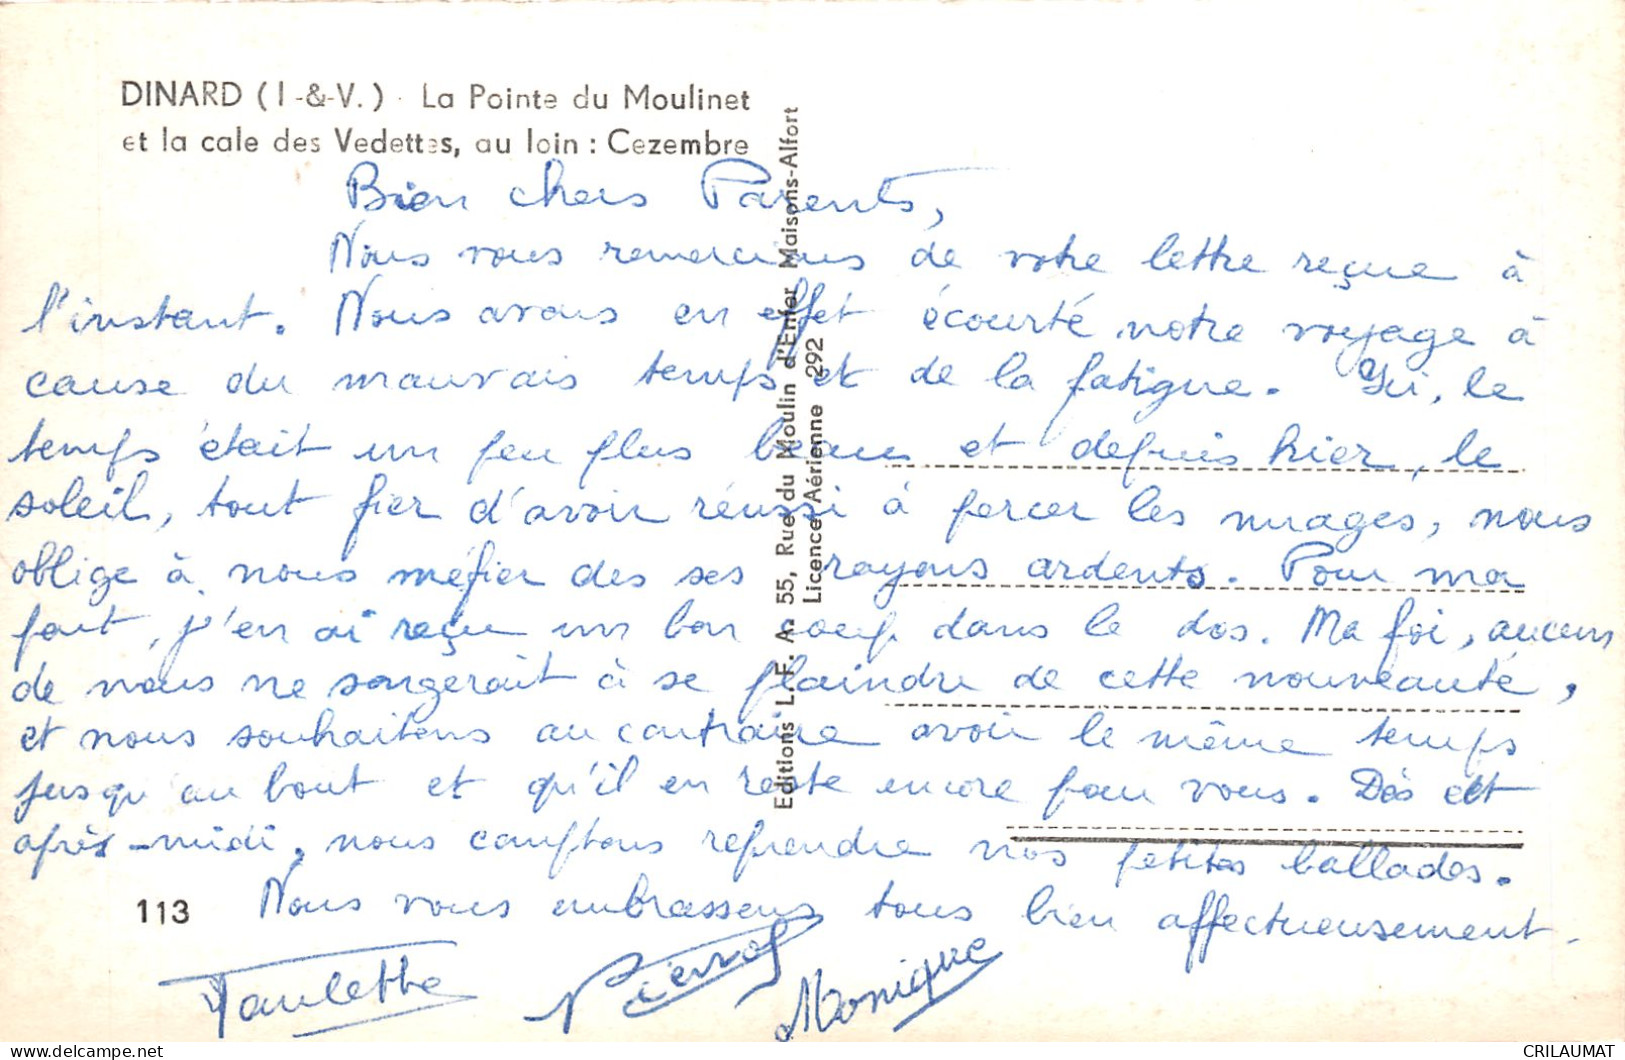 DINARD (I-&-V.) - La Pointe du Moulinet
et la cale des Vedettes, au loin : Cezembre
Bien chers Parents,
Nous vous remercions de votre lettre reçue à
l'instant. Nous avons en effet écourté notre voyage à
cause du mauvais temps et de la fatigue. Ici, le
temps était un peu plus beau et depuis hier, le
soleil, tout fier d'avoir réussi à percer les nuages, nous
oblige à nous méfier des ses rayons ardents. Pour ma
part, j'en ai reçu un bon coup dans le dos. Ma foi, aucun
de nous ne songerait à se plaindre de cette nouveauté,
et nous souhaitons au contraire avoir le même temps
jusqu'au bout et qu'il en reste encore pour vous. Dès cet
après-midi, nous comptons reprendre nos petites ballades.
Nous vous embrassons tous bien affectueusement.
Paulette Pierrot Monique
113
Editions L. F. A. 55, Rue du Moulin d'Enfer Maisons-Alfort
Licence Aérienne 292
CRILAUMAT